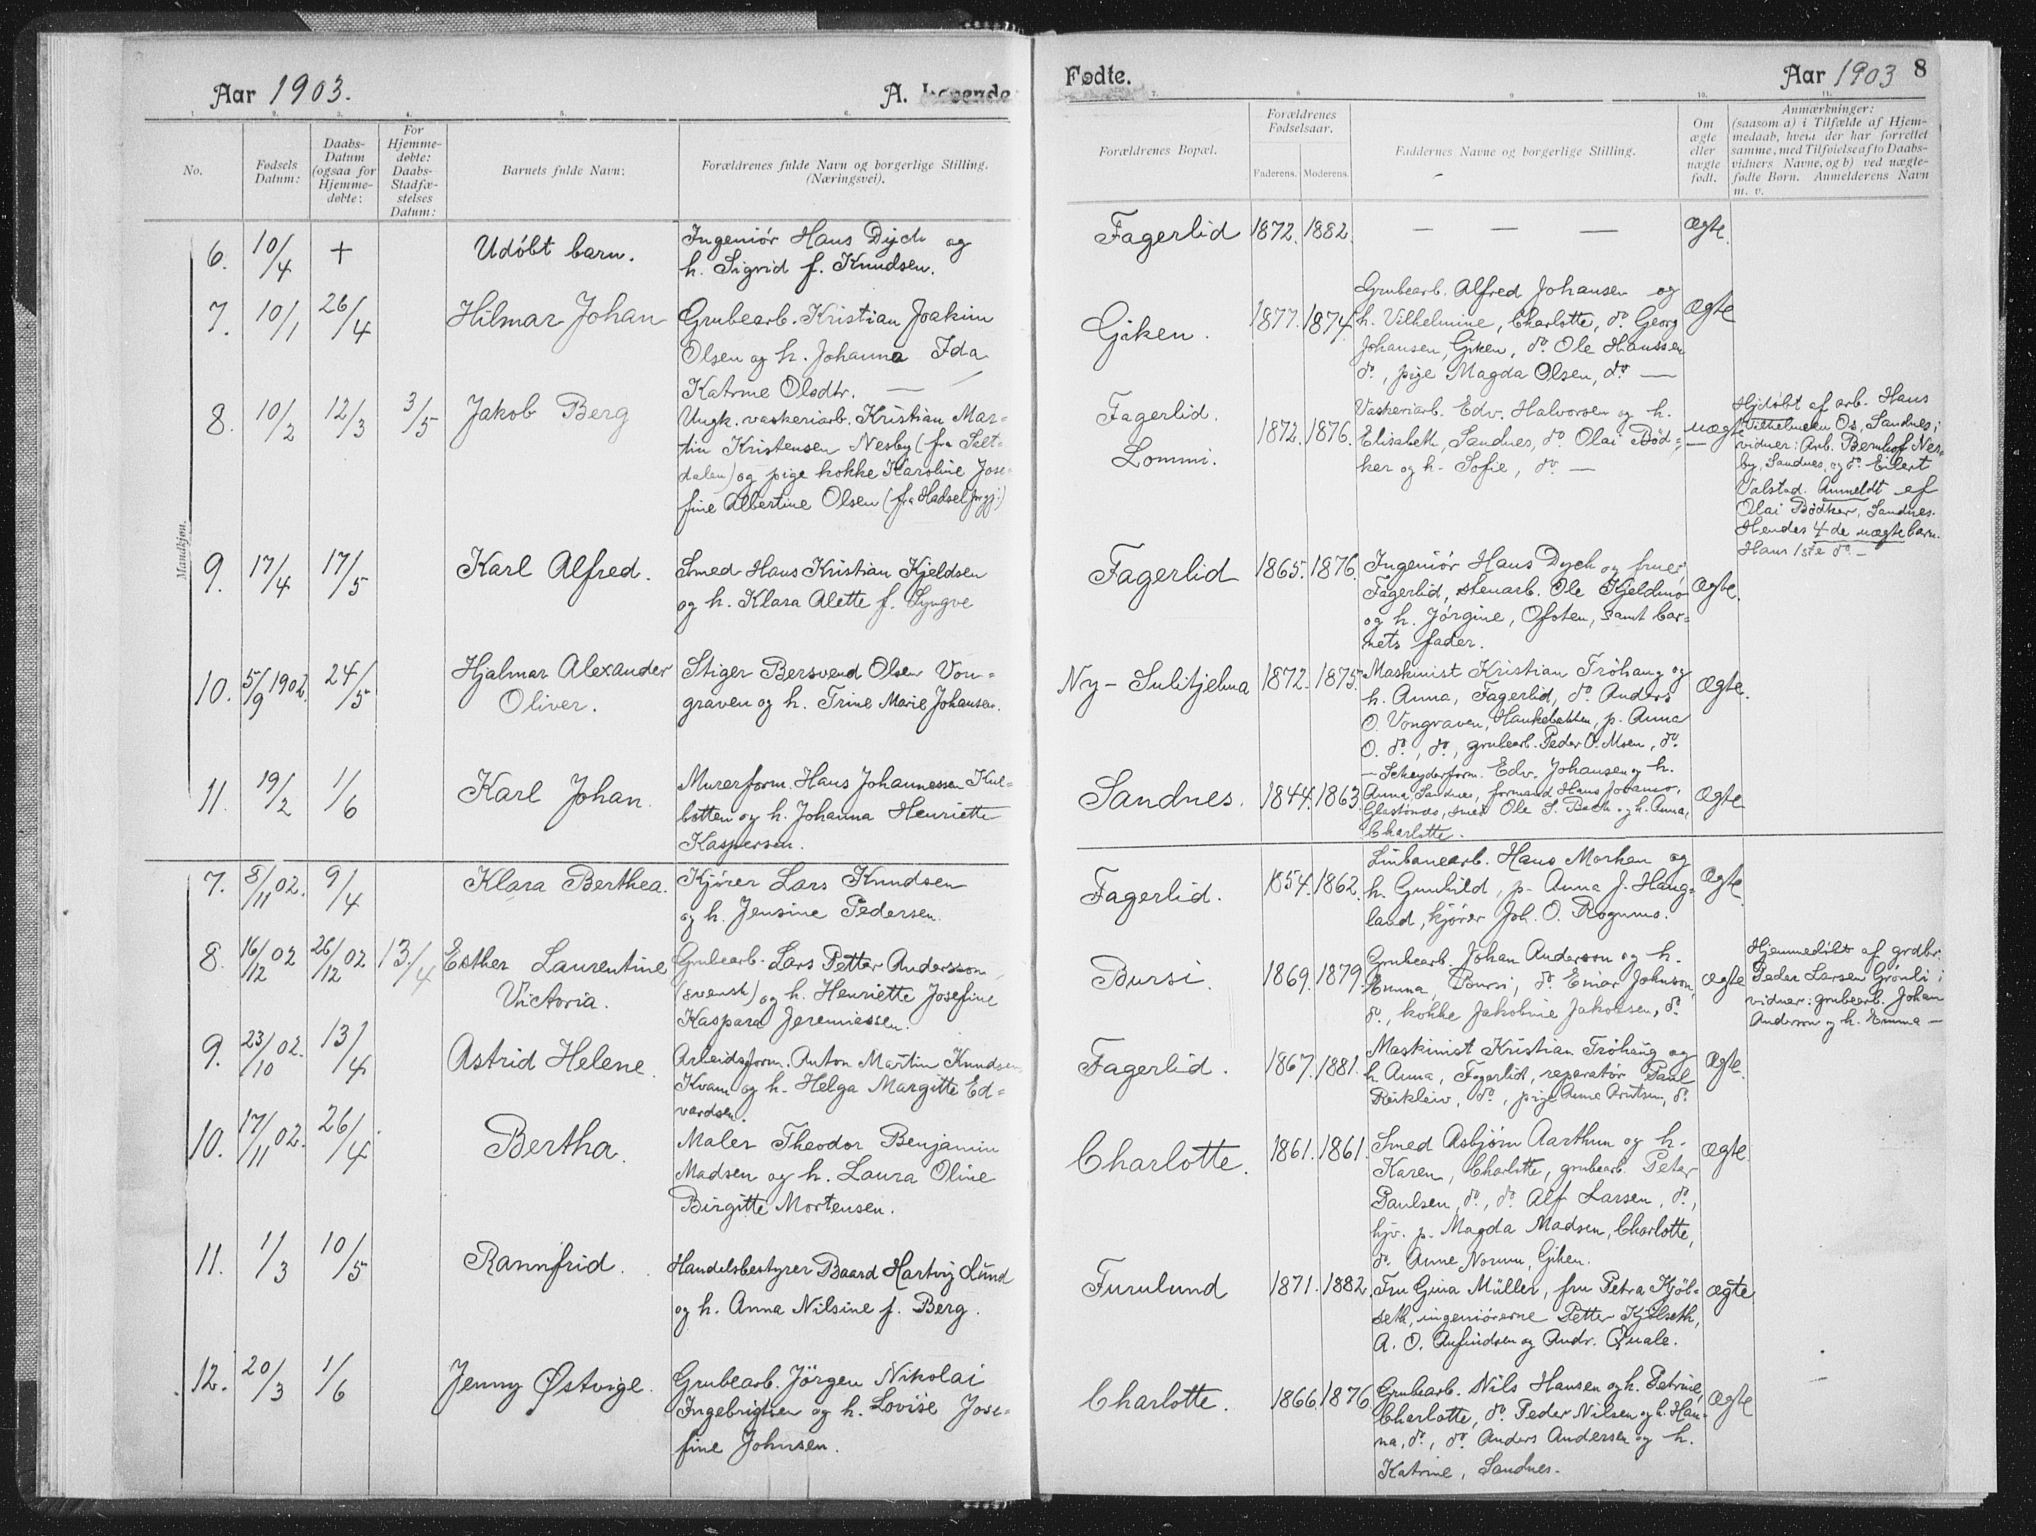 Aar 1903.
A. Levende
Fødte.
Aar 1903
8
1. 2. 3. 4. 5. 6. 7. 8. 9. 10. 11.
No.
Fødsels Datum:
Daabs-Datum (ogsaa for Hjemme-døbte:
For Hjemme-døbte: Daabs-Stadfæ-stelses Datum:
Barnets fulde Navn:
Forældrenes fulde Navn og borgerlige Stilling. (Næringsvei).
Forældrenes Bopæl.
Forældrenes Fødselsaar.
Faderens. Moderens.
Faddernes Navne og borgerlige Stilling.
Om ægte eller uægte født.
Anmærkninger:
(saasom a) i Tilfælde af Hjem-
medaab, hvem der har forrettet
samme, med Tilføielse af to Daabs-
vidners Navne, og b) ved uægte-
fødte Børn. Anmelderens Navn
m. v.
Mandkjøn.
6. 10/4 + Udöbt barn.
Ingeniör Hans Dych og
h. Sigrid f. Knudsen.
Fagerlid 1872. 1882. — — — Ægte.
7. 10/1 26/4 Hilmar Johan
Grubearb. Kristian Joakim
Olsen og h. Johanna Ida
Katrine Olsdtr. —
Giken. 1877. 1874.
Grubearb. Alfred Johansen og
h. Vilhelmine, Charlotte, do. Georg
Johansen, Giken, do. Ole Hanssen
do., pige Magda Olsen, do. —
Ægte
8. 10/2 12/3 3/5 Jakob Berg
Ungk. vaskeriarb. Kristian Mar-
tin Kristensen Nesby (fra Salt-
dalen) og pige kokke Karoline Jose-
fine Albertine Olsen (fra Hadsel prgj.)
Fagerlid.
Lommi.
1872. 1876.
Vaskeriarb. Edv. Halvorsen og h.
Elisabeth, Sandnes, do. Olai Böd-
ker og h. Sofie, do. —
uægte
Hjdöbt af arb. Hans
Vilhelmsen Os, Sandnes;
vidner: Arb. Bernhof Nes-
by, Sandnes, og do. Eilert
Valstad. Anmeldt af
Olai Bödker, Sandnes.
Hendes 4-de uægte barn.
Hans 1ste do. —
9. 17/4 17/5 Karl Alfred.
Smed Hans Kristian Kjeldsen
og h. Klara Alette f. Lyngve
Fagerlid 1865. 1876.
Ingeniör Hans Dych og frue,
Fagerlid, stenarb. Ole Kjeldmo
og h. Jörgine, Ofoten, samt bar-
nets fader.
Ægte.
10. 5/9 1902. 24/5 Hjalmar Alexander
Oliver.
Stiger Bersvend Olsen Von-
graven og h. Trine Marie Johansen.
Ny-Sulitjelma 1872. 1875.
Maskinist Kristian Fröhaug og
h. Anna, Fagerlid, do. Anders
O. Vongraven, Hankebakken, p. Anna
O. do., do., grubearb. Peder O. Moen, do.
Ægte.
11. 19/2 1/6 Karl Johan.
Murerform. Hans Johannessen Kul-
botten og h. Johanna Henriette
Kaspersen.
Sandnes. 1844. 1863.
— Scheyderform. Edv. Johansen og h.
Anna, Sandnes, formand Hans Johans.
Glastönes, smed Ole S. Bach og h. Anna,
Charlotte.
Ægte
7. 8/11 02. 9/4 Klara Berthea.
Kjörer Lars Knudsen
og h. Jensine Pedersen.
Fagerlid. 1854. 1862.
Linbanearb. Hans Morken og
h. Gunhild, p. Anna J. Haug-
land, kjörer Joh. O. Rognmo.
Ægte.
8. 16/12 02 26/12 02 13/4 Esther Laurentine
Victoria.
Grubearb. Lars Petter Andersson
(svensk) og h. Henriette Josefine
Kaspara Jeremiessen.
Bursi. 1869. 1879.
Grubearb. Johan Anderson og h.
Emma, Bursi, do. Einar Johnson,
do., kokke Jakobine Jakobsen, do.
Ægte
Hjemmedöbt af grdbr.
Peder Larsen Grönli;
vidner: grubearb. Johan
Anderson og h. Emma —
9. 23/10 02. 13/4 Astrid Helene.
Arbeidsform. Anton Martin Knudsen
Kvam og h. Helga Margitte Ed-
vardsen.
Fagerlid. 1867. 1881.
Maskinist Kristian Fröhaug og
h. Anna, Fagerlid, reparatör Paul
Reikleiv, do., pige Anne Arntsen, do.
Ægte.
10. 17/11 02. 26/4 Bertha.
Maler Theodor Benjamin
Madsen og h. Laura Oline
Birgitte Mortensen.
Charlotte. 1861. 1861.
Smed Asbjörn Aarthun og h.
Karen, Charlotte, grubearb. Peter
Paulsen, do., do. Alf Larsen, do.,
hjv. p. Magda Madsen, Charlotte,
do. Anne Norum, Giken.
Ægte.
11. 1/3 10/5 Rannfrid.
Handelsbestyrer Baard Hartvig Lund
og h. Anna Nilsine f. Berg.
Furulund 1871. 1882.
Fru Gina Müller, fru Petra Kjöl-
seth, ingeniörerne Petter Kjölseth,
A. O. Anfindsen og Andr. Quale.
Ægte
12. 20/3 1/6 Jenny Østvige.
Grubearb. Jörgen Nikolai
Ingebrigtsen og h. Lovise Jose-
fine Johnsen.
Charlotte. 1866. 1876.
Grubearb. Nils Hansen og h. Petrine,
Charlotte, do. Peder Nilsen og h. Han-
na, do., do. Anders Andersen og h.
Katrine, Sandnes.
Ægte